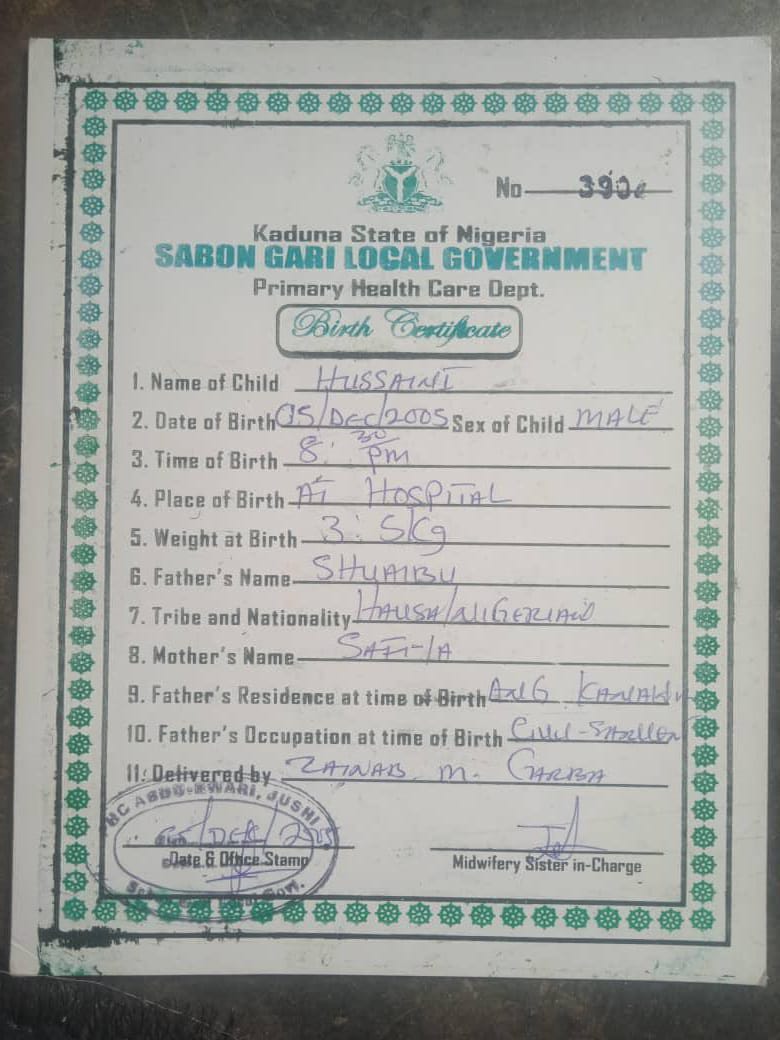 No 390
Kaduna State of Nigeria
SABON GARI LOCAL GOVERNMENT
Primary Health Care Dept.
Birth Certificate
1. Name of Child HUSSAINI
2. Date of Birth 05/DEC/2005 Sex of Child MALE
3. Time of Birth 8:30 pm
4. Place of Birth AT HOSPITAL
5. Weight at Birth 3:5Kg
6. Father's Name SHUAIBU
7. Tribe and Nationality HAUSA/NIGERIAN
8. Mother's Name SAFI-IA
9. Father's Residence at time of Birth ANG
10. Father's Occupation at time of Birth
11. Delivered by ZAINAB M. GARBA
HC ABDU-KWARI, JUSHI
05/DEC/2005
Date & Office Stamp
Midwifery Sister in-Charge